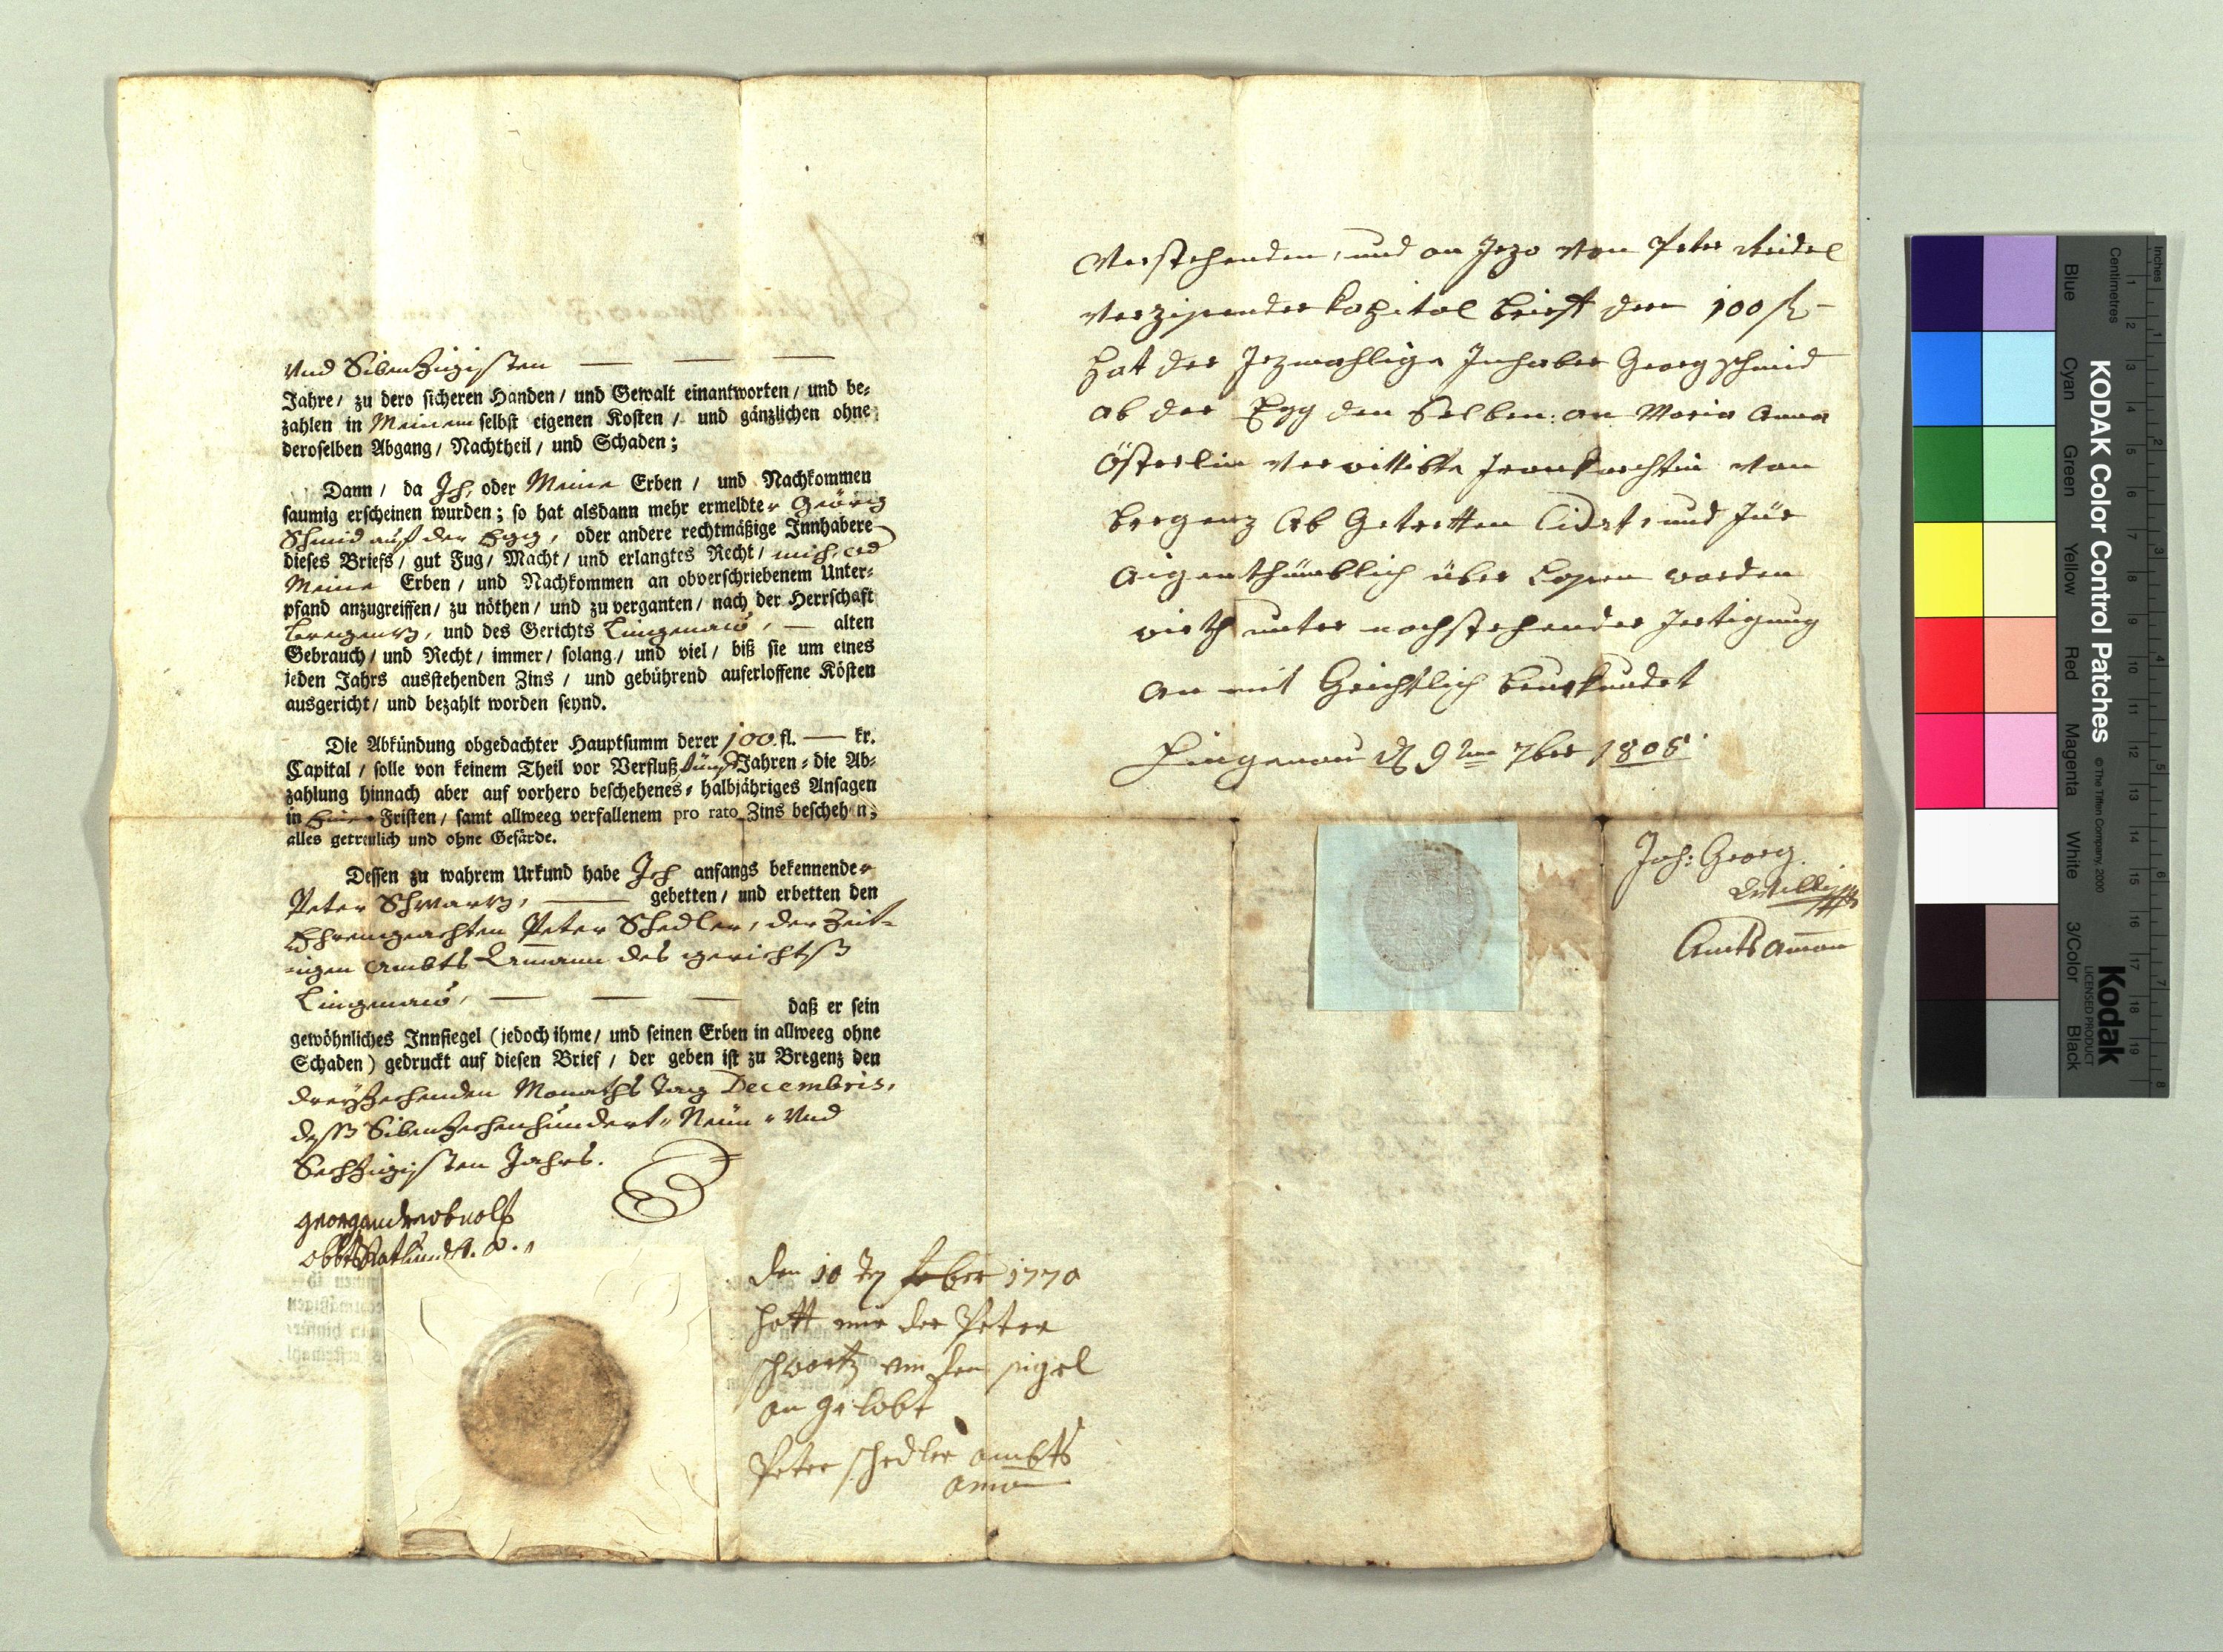 Und Sibenzigisten
Jahre / zu dero sicheren Handen / und Gewalt einantworten / und be⸗
zahlen in Meinem selbst eigenen Kosten / und gänzlichen ohne
deroselben Abgang / Nachtheil / und Schaden ;
Dann / da Ich, oder Meine Erben / und Nachkommen
saumig erscheinen wurden ; so hat alsdann mehr ermeldter Geörg
Schmid auf der Egg, oder andere rechtmäßige Innhabere
dieses Briefs / gut Fug / Macht / und erlangtes Recht / mich, od
Meine Erben / und Nachkommen an obverschriebenem Unter⸗
pfand anzugreiffen / zu nöthen / und zu verganten / nach der Herrschaft
Bregentz, und des Gerichts Lingenaw, alten
Gebrauch / und Recht / immer / solang / und viel / biß sie um eines
jeden Jahrs ausstehenden Zins / und gebührend auferloffene Kösten
ausgericht / und bezahlt worden seynd.
Die Abkündung obgedachter Hauptsumm derer 100. fl. — kr.
Capital / solle von keinem Theil vor Verfluß fünf Jahren ⸗ die Ab⸗
zahlung hinnach aber auf vorhero beschehenes ⸗ halbjähriges Ansagen
in Fristen / samt allweeg verfallenem pro rato Zins beschehen ;
alles getreulich und ohne Gefärde.
Dessen zu wahrem Urkund habe Ich anfangs bekennender
Peter Schwartz, gebetten / und erbetten den
Ehrengeachten Peter Schedler, der Zeit⸗
igen Ambts Amann des gerichtß
Lingenaw, daß er sein
gewöhnliches Innsiegel ( jedoch ihme / und seinen Erben in allweeg ohne
Schaden ) gedruckt auf diesen Brief / der geben ist zu Bregenz den
dreyzehenden Monaths Tag Decembris,
deß Sibenzehenhundert ⸗ Neün ⸗ Und
Sechzigisten Jahrs.
den 10 1770
hatt mir der Peter
schwartz um den sigel
an gelobt
Peter schedler ambts
aman
Vorstehenden, und an Jezo von Peter
Verzinsender Kapital brieff den 100 fl
hat der Jezmahlige Inhaber Georg schmid
ab der Egg den selben an Maria Anna
Österlin Verwittibte von
bregenz Ab Getretten und für
aigenthümblich über worden
wirth unter nachstehender fertigung
an mit Grichtlich beurkundet
Lingenau d 9ten 7ber 1808
Joh: Georg
Amts aman
KODAK Color Control Patches
© The Tiffen Company, 2000
Kodak
LICENSED PRODUCT
Inches
Centimetres
1 2 3 4 5 6 7 8
1 2 3 4 5 6 7 8 9 10 11 12 13 14 15 16 17 18 19
Blue
Cyan
Green
Yellow
Red
Magenta
White
3/Color
Black